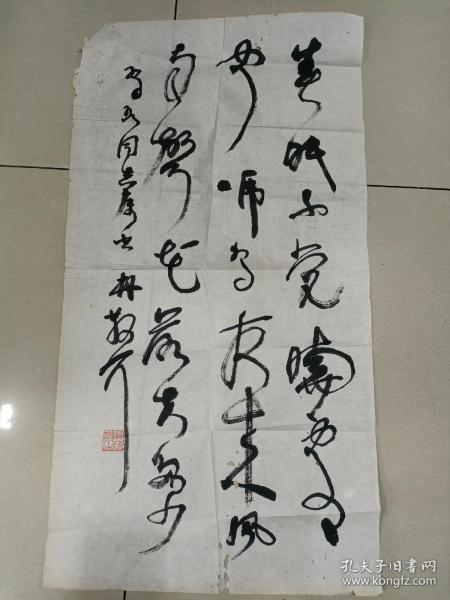 春眠不觉曉处々
闻啼鸟夜来风
雨聲花落知多少
同志
孔夫子旧书网
www.kongfz.com